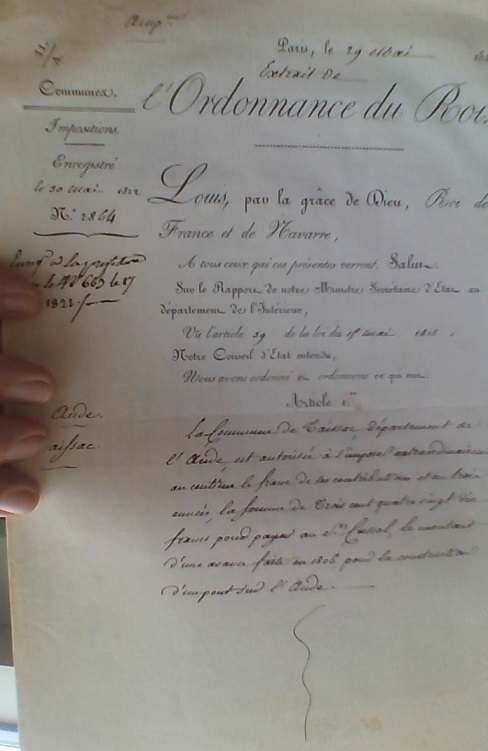 Amp.on
Paris, le 29 Mai
Extrait de
l'Ordonnance du Roi.
Communes.
Impositions.
Enregistré
le 30 mai 1822
N.° 2864
à la préfecture
le N° 663 le 17
1822
Louis, par la grâce de Dieu, Roi de
France et de Navarre,
A tous ceux qui ces présentes verront, Salut.
Sur le Rapport de notre Ministre Secrétaire d'Etat au
département de l'Intérieur,
Vu l'article 39 de la loi du 15 mai 1818.
Notre Conseil d'Etat entendu,
Nous avons ordonné et ordonnons ce qui suit
Article 1.er
Aude.
aissac
La Commune de département de
l'Aude est autorisée à s'imposer extraordinairement
au centime le franc de ses contributions et en trois
années, la somme de Trois cent quatre vingt dix
francs pour payer au S.r le montant
d'une avance faite en 1806 pour la construction
d'un pont sur l'Aude.